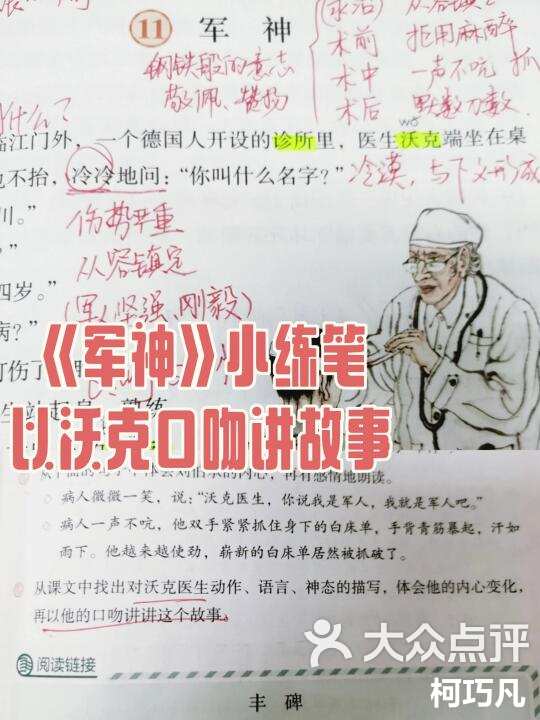 11 军 神
(求治)
术前 拒用麻醉
术中 一声不吭 抓
术后 默数刀数
钢铁般的意志
敬佩、赞扬
什么?
临江门外，一个德国人开设的诊所里，医生沃克端坐在桌
wò
也不抬，冷冷地问：“你叫什么名字？”
冷漠，与下文形成
川。”
伤势严重
从容镇定
四岁。”
(军人坚强、刚毅)
病？”
打伤了
《军神》小练笔
以沃克口吻讲故事
病人微微一笑，说：“沃克医生，你说我是军人，我就是军人吧。”
病人一声不吭，他双手紧紧抓住身下的白床单，手背青筋暴起，汗如
雨下。他越来越使劲，崭新的白床单居然被抓破了。
从课文中找出对沃克医生动作、语言、神态的描写，体会他的内心变化，
再以他的口吻讲讲这个故事。
阅读链接
丰 碑
大众点评
柯巧凡